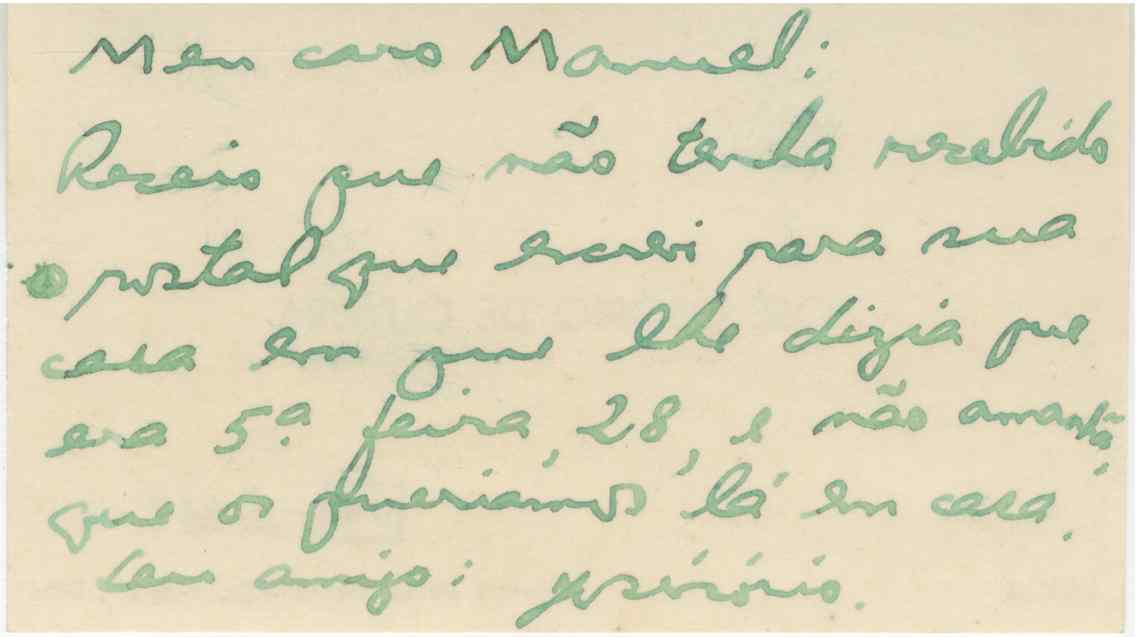 Meu caro Manuel:
Receio que não tenha recebido
o postal que escrevi para sua
casa em que lhe dizia que
era 5ª feira, 28, e não amanhã,
que os queríamos lá em casa.
Seu amigo: